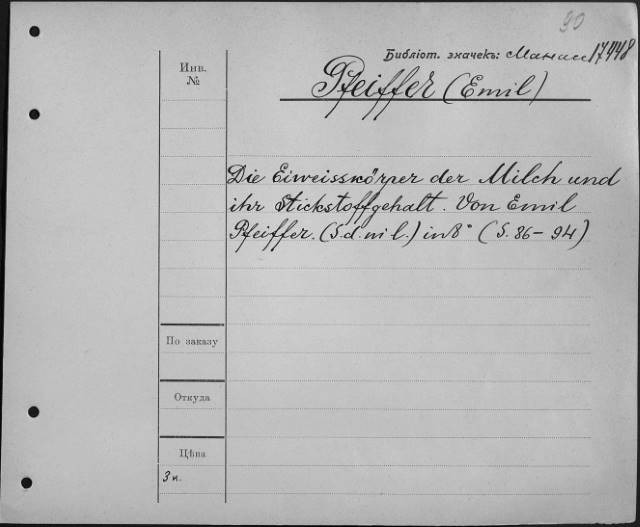 90
Библіот. значекъ: Манас 17448
Инв.
№
Pfeiffer (Emil)
Die Eiweisskörper der Milch und
ihr Stickstoffgehalt. Von Emil
Pfeiffer. (S.d. ni l.) in 8° (S. 86-94)
По заказу
Откуда
Цѣна
3 к.